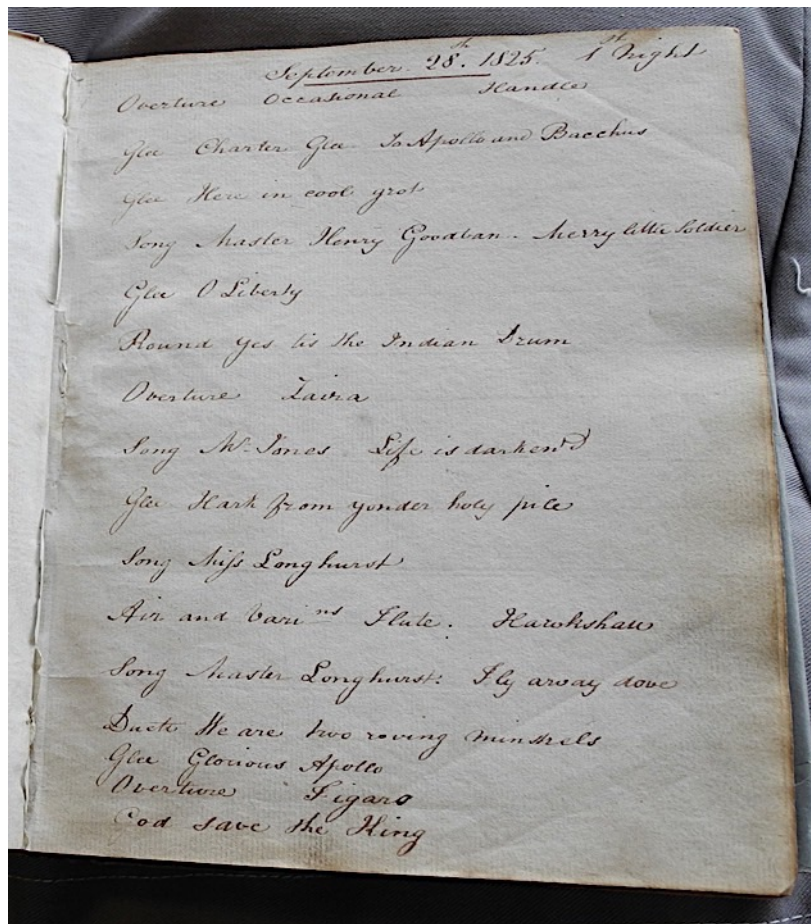 September. 28th. 1825. 1st Night
Overture Occasional Handle
Glee Charter Glee To Apollo and Bacchus
Glee Here in cool grot
Song Master Henry Goodban. Merry little Soldier
Glee O Liberty
Round Yes tis the Indian Drum
Overture Zaira
Song Mr. Jones Life is darken'd
Glee Hark from yonder holy pile
Song Miss Longhurst
Air and Varins Flute. Hawkshaw
Song Master Longhurst: Fly away dove
Duett We are two roving minstrels
Glee Glorious Apollo
Overture Figaro
God save the King